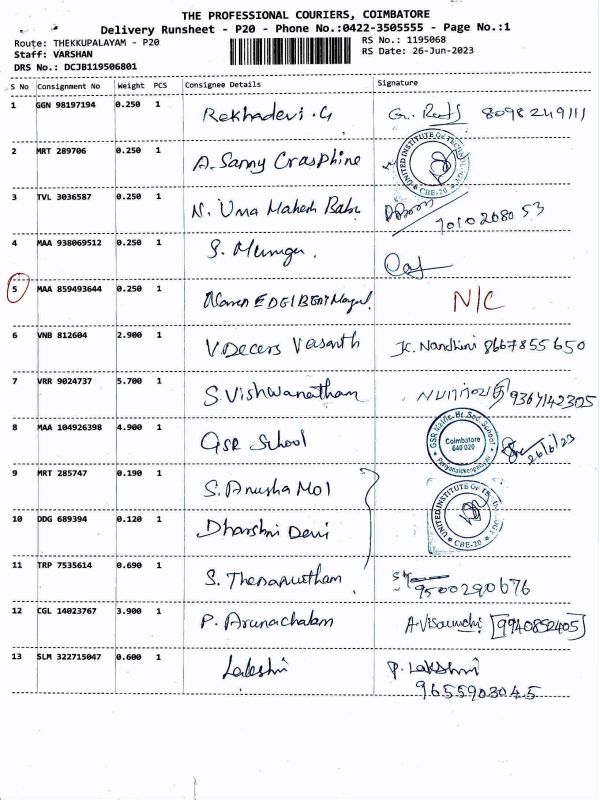 THE PROFESSIONAL COURIERS, COIMBATORE
Delivery Runsheet - P20 - Phone No.:0422-3505555 - Page No.:1
Route: THEKKUPALAYAM - P20 RS No.: 1195068
Staff: VARSHAN RS Date: 26-Jun-2023
DRS No.: DCJB119506801
S No Consignment No Weight PCS Consignee Details Signature
1 GGN 98197194 0.250 1 Rekhadevi.G 8098249111
2 MRT 289706 0.250 1 A. Sanny Crasphine UNITED INSTITUTE OF TECHNOLOGY CBE-20
3 TVL 3036587 0.250 1 N. Uma Mahesh Babu
4 MAA 938069512 0.250 1 S. Murugan.
5 MAA 859493644 0.250 1 N/C
6 VNB 812604 2.900 1 V. Vasanth K. Nandhini 8667855650
7 VRR 9024737 5.700 1 S. Vishwanatham 9367142305
8 MAA 104926398 4.900 1 GSR School GSR Matric. Hr. Sec. School Coimbatore 640 020 26/6/23
9 MRT 285747 0.190 1 S. Anusha Mol UNITED INSTITUTE OF TECHNOLOGY CBE-20
10 DDG 689394 0.120 1 Dharshni Devi
11 TRP 7535614 0.690 1 S. 9500290676
12 CGL 14023767 3.900 1 P. Arunachalam 9940852405
13 SLM 322715047 0.600 1 P. Lakshmi
9655903045